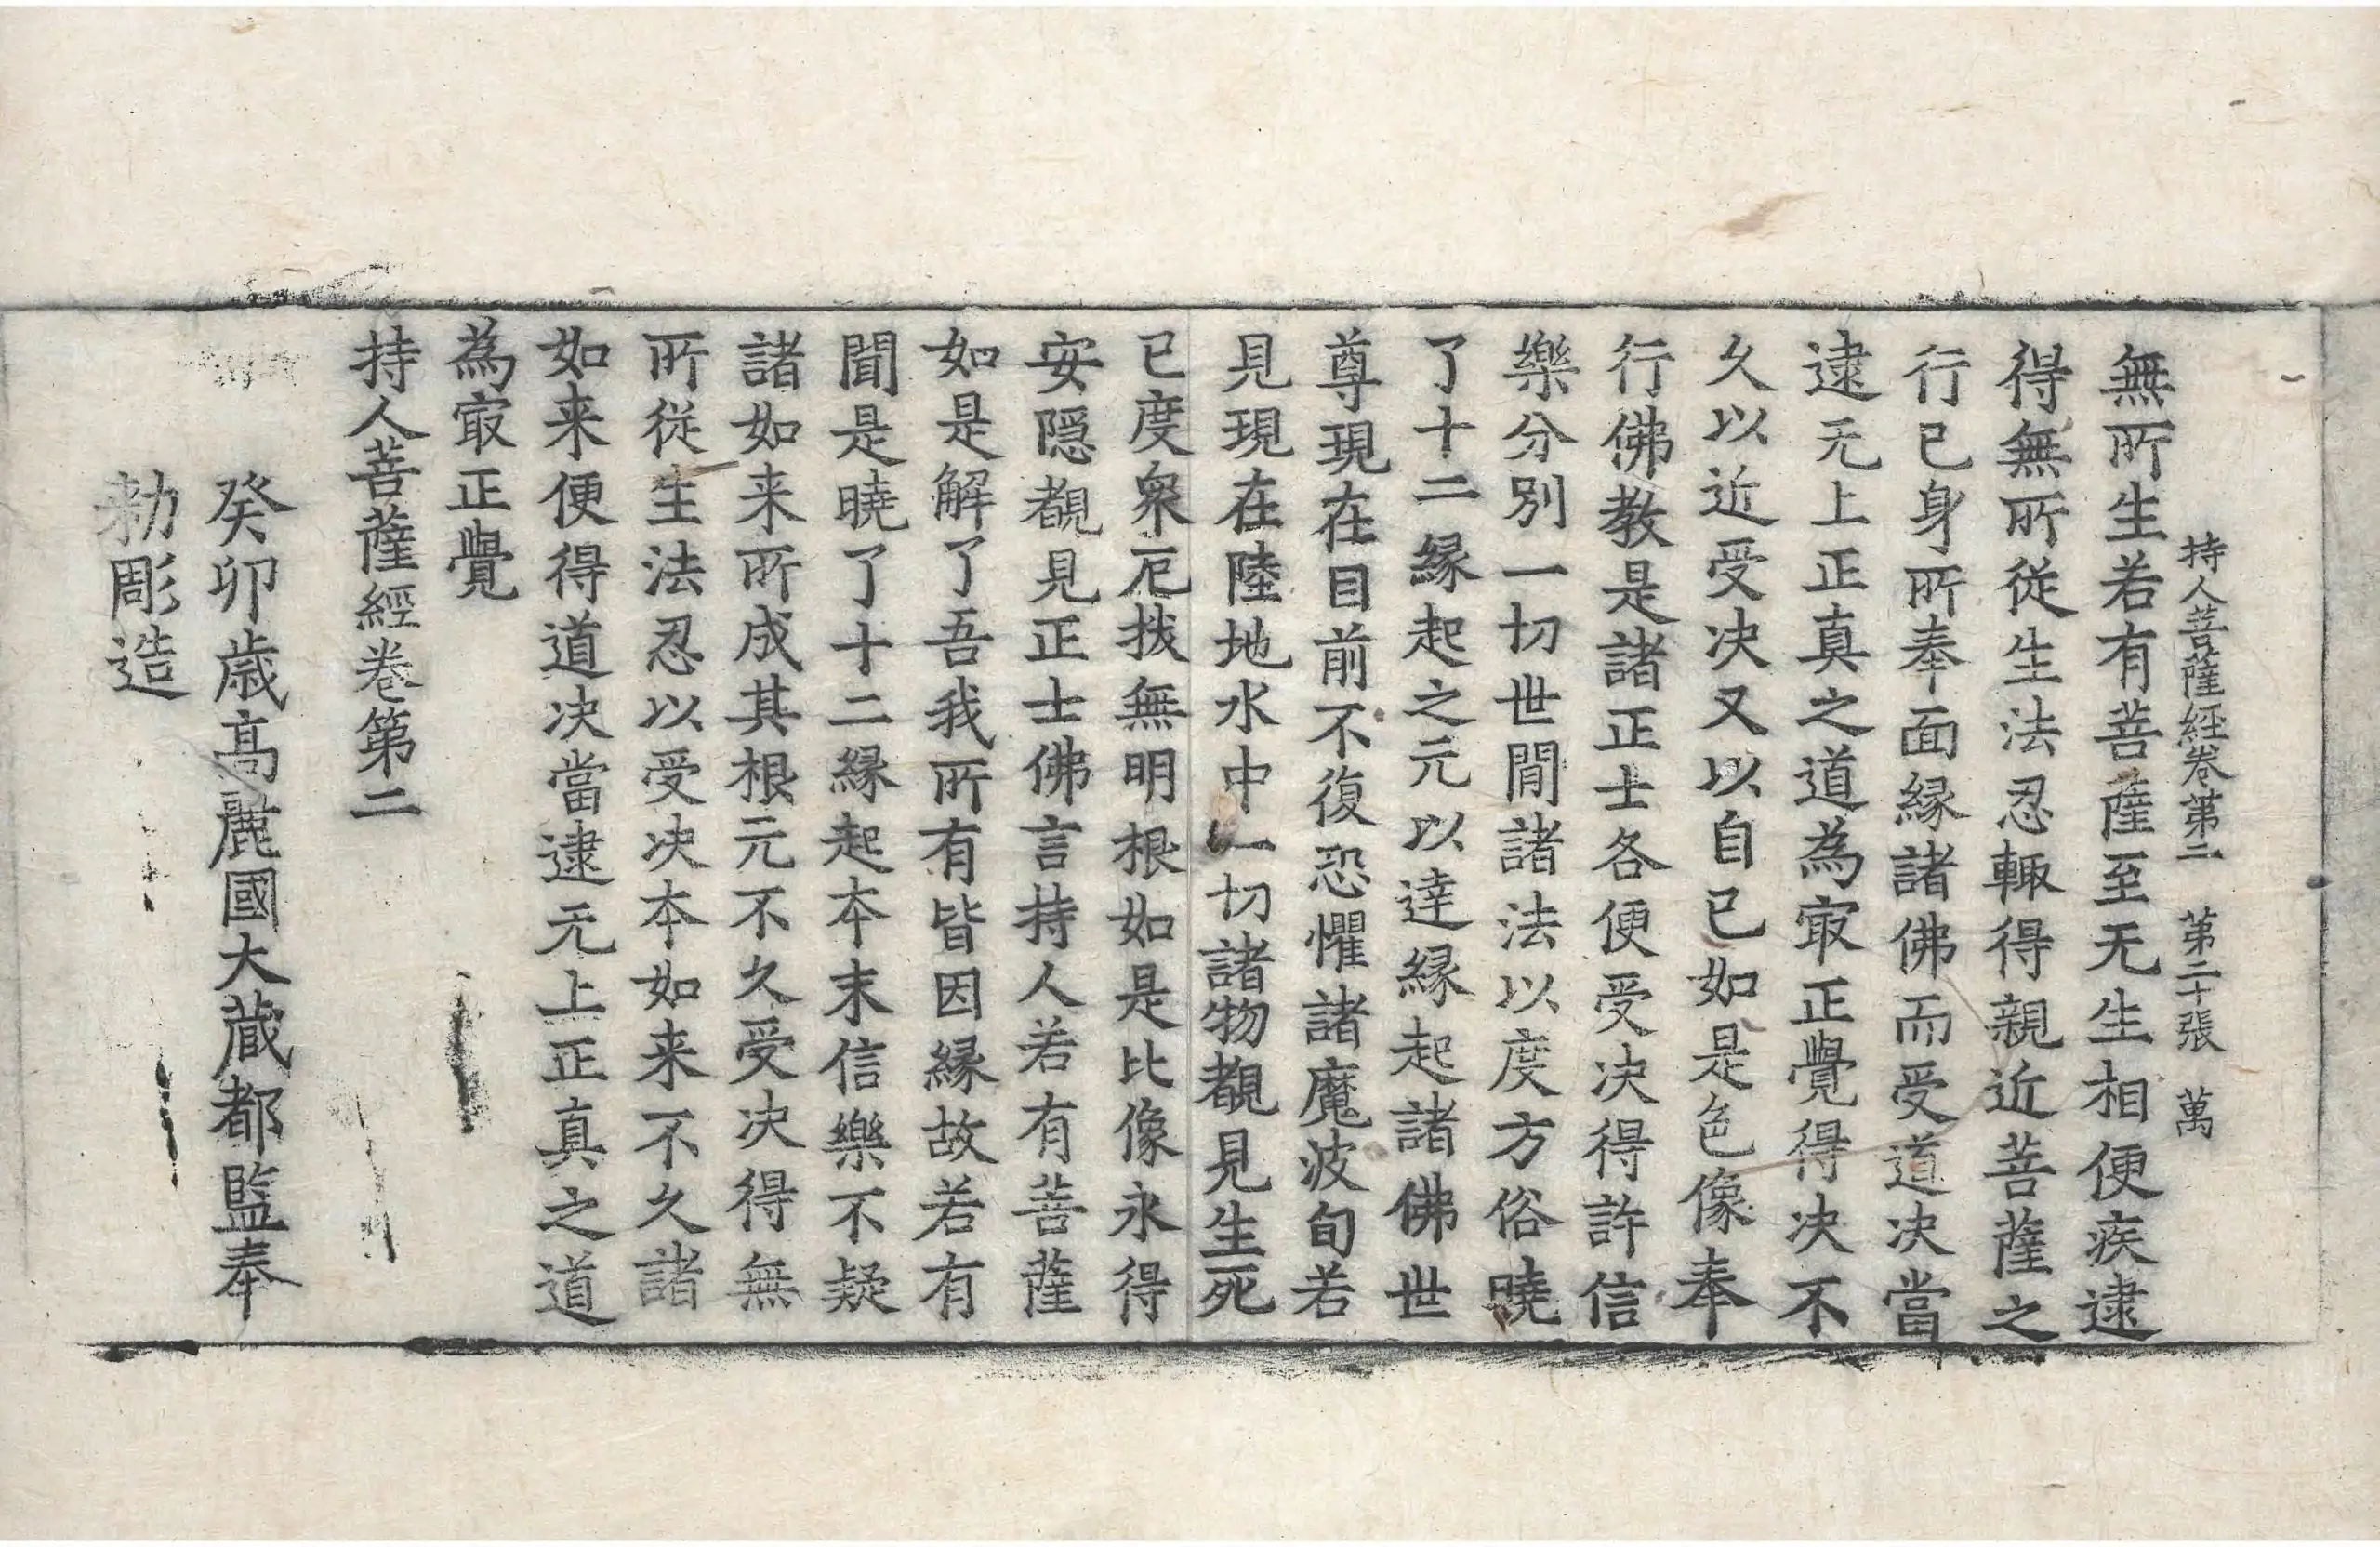 持人菩薩經卷第二 第二十張 萬
無所生若有菩薩至无生相便疾逮
得無所從生法忍輙得親近菩薩之
行已身所奉面縁諸佛而受道决當
逮无上正真之道為㝡正覺得决不
久以近受决又以自已如是色像奉
行佛教是諸正士各便受决得許信
樂分別一切世閒諸法以度方俗曉
了十二縁起之元以達縁起諸佛世
尊現在目前不復恐懼諸魔波旬若
見現在陸地水中一切諸物覩見生死
已度衆厄拔無明根如是比像永得
安隠覩見正士佛言持人若有菩薩
如是解了吾我所有皆因縁故若有
聞是曉了十二縁起本末信樂不疑
諸如来所成其根元不久受决得無
所從生法忍以受决本如来不久諸
如来便得道决當逮无上正真之道
為㝡正覺
持人菩薩經卷第二
癸卯歳高麗國大藏都監奉
勅彫造